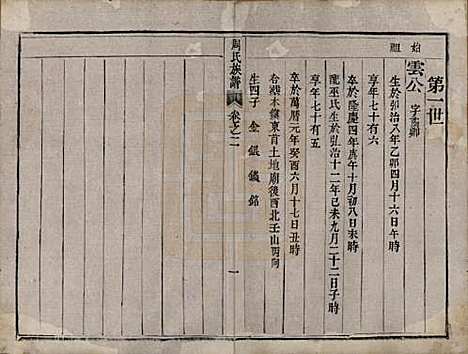 第一世
始祖
雲公 字高卿
生於弘治八年乙卯四月十六日午時
享年七十有六
卒於隆慶四年庚午十月初八日未時
配巫氏生於弘治十二年己未九月二十二日子時
享年七十有五
卒於萬曆元年癸酉六月十七日丑時
合塟木黨東首土地廟後酉北壬山丙向
生四子 金 銀 鐵 銘
周氏族譜 卷之二 一